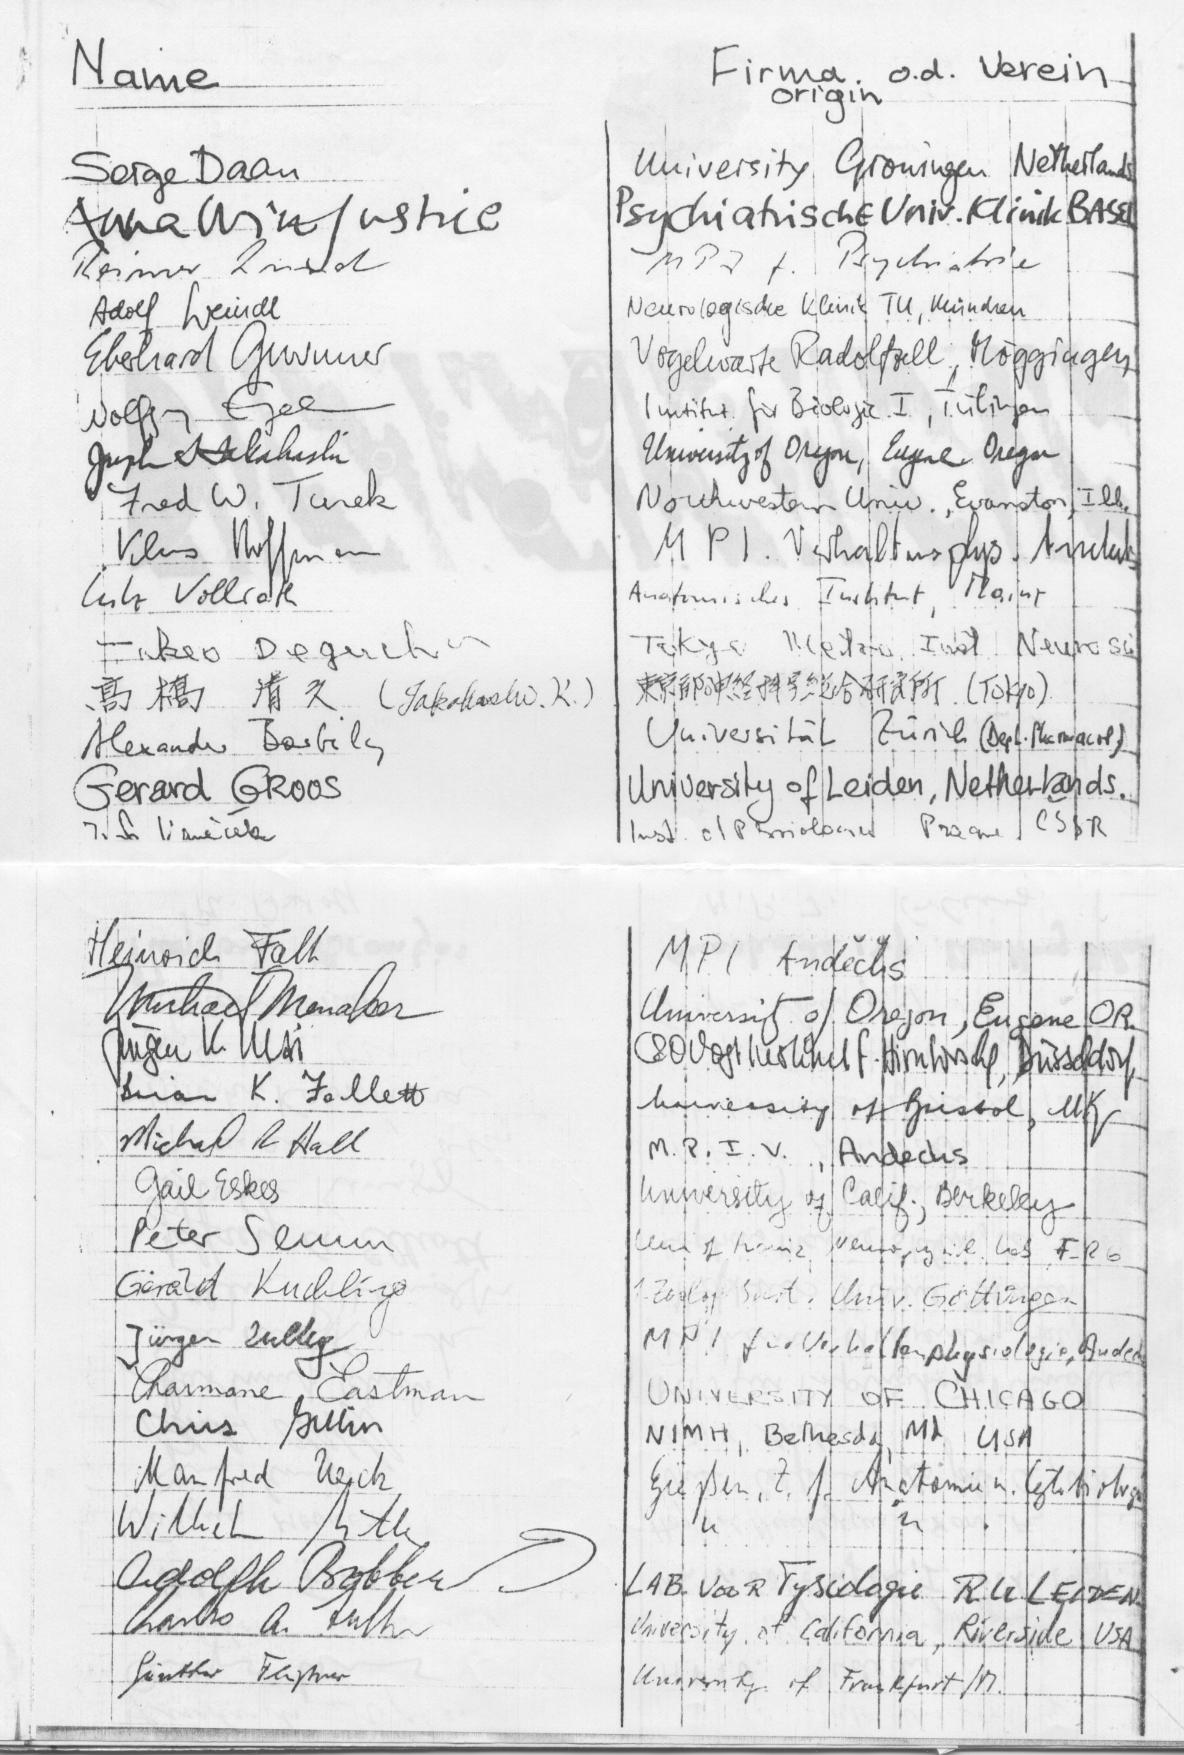 Name Firma. o.d. Verein
origin
Serge Daan University Groningen Netherlands
Anna Wirz Justice Psychiatrische Univ. Klinik BASEL
Reimer MPI f. Psychiatrie
Adolf Weindl Neurologische Klinik TU, München
Eberhard Gwinner Vogelwarte Radolfzell, Möggingen
Wolfgang Institut für Biologie I, Tübingen
Joseph S Takahashi University of Oregon, Eugene Oregon
Fred W. Turek Northwestern Univ., Evanston, Ill.
Klaus Hoffmann MPI. Verhaltensphys. Andechs
Lutz Vollrath Anatomisches Institut, Mainz
Takeo Deguchi Tokyo Metro. Inst Neurosci
髙橋 清久 (Takahashi. K.) 東京都神経科学総合研究所 (Tokyo)
Alexander Borbély Universität Zürich (Dept. Pharmacol)
Gerard GROOS University of Leiden, Netherlands.
Inst. of Physiology Prague ČSSR
Heinrich MPI Andechs
Michael Menaker University of Oregon, Eugene OR.
Jürgen K. C&O Vogt Institut f. Hirnforsch, Düsseldorf
Brian K. Follett University of Bristol, UK
Michael R Hall M.P.I.V., Andechs
Gail Eskes University of Calif., Berkeley
Peter Semm Univ of Mainz, FRG
Gerald Kuchling 1. Zoolog Inst. Univ. Göttingen
Jürgen Zulley MPI für Verhaltensphysiologie, Andechs
Charmane Eastman UNIVERSITY OF CHICAGO
Chris Gillin NIMH, Bethesda, Md USA
Manfred Ueck Gießen, Z. f. Anatomie u. Cytobiologie
" " .
Adolph LAB. VOOR Fysiologie RU LEIDEN
Charles A. Fuller University of California, Riverside USA
Günther Fleissner University of Frankfurt/M.